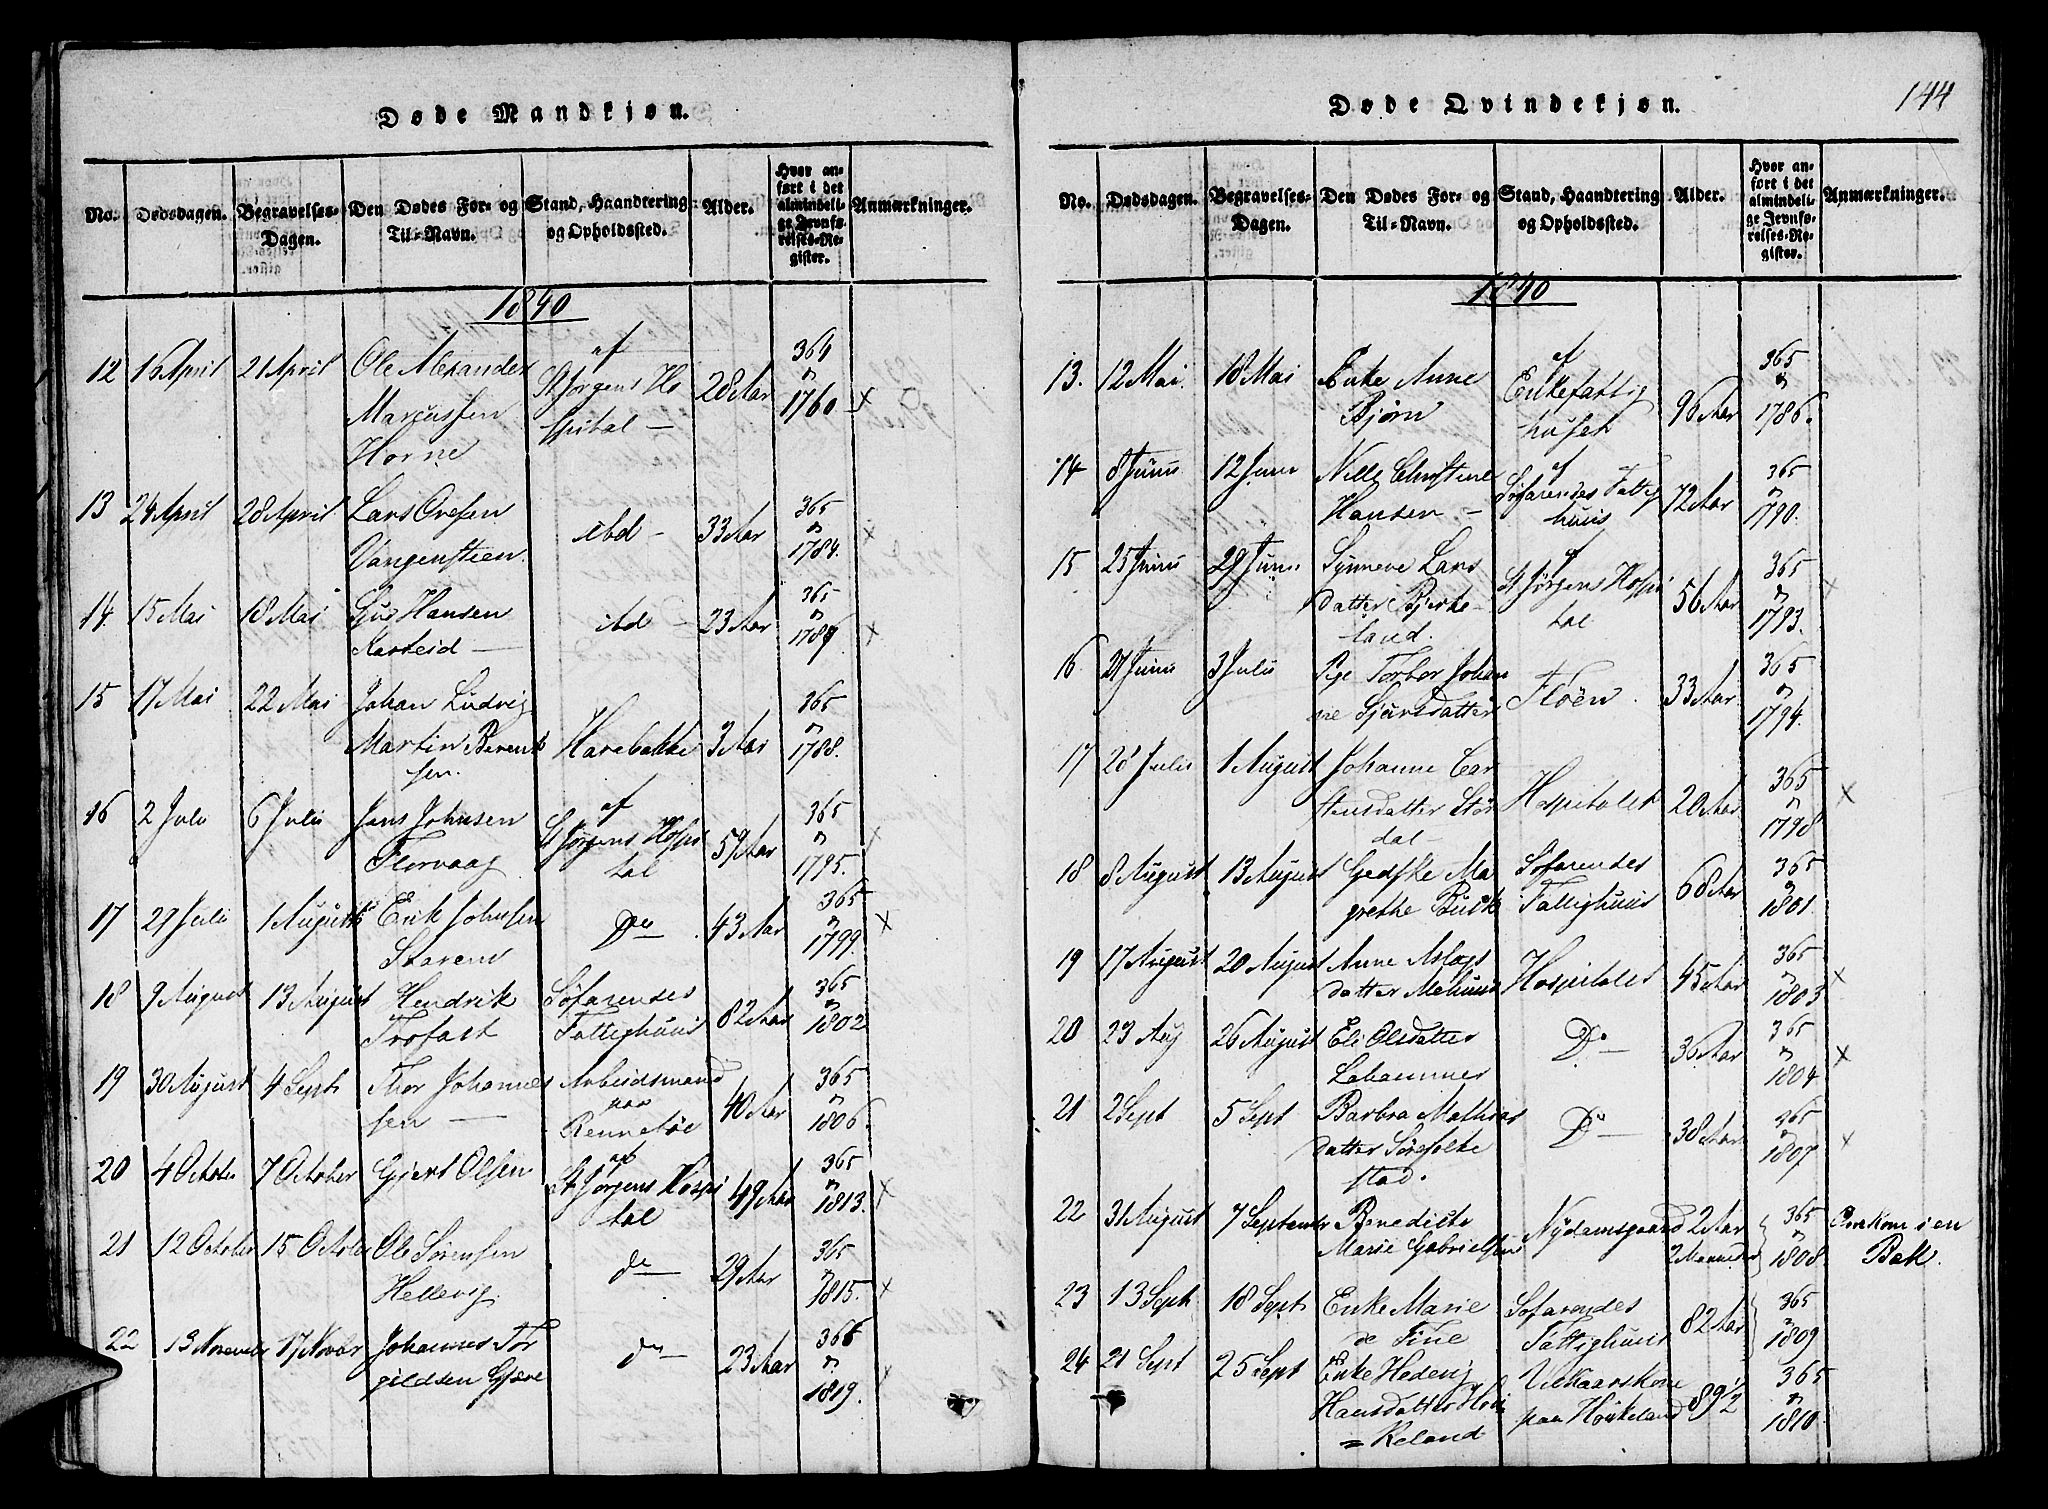 Døde Mandkjøn.
No.
Dødsdagen.
Begravelses-
Dagen.
Den Dødes For- og
Til-Navn.
Stand, Haandtering
og Opholdssted.
Alder.
Hvor an-
ført i det
almindeli-
ge Jevnfø-
relses-Re-
gister.
Anmærkninger.
1840
12 16 April 21 April Ole Alexander
Marcussen
Horne
af
St Jørgens Ho
spital —
28 Aar
364
n
1760
×
13 24 April 28 April Lars Ovesen
Vangensteen
ibd —
33 Aar
365
n
1784.
×
14. 15 Mai 18 Mai Hansen
ibd —
23 Aar
365
n
×
15 17 Mai 22 Mai Johan Ludvig
Martin Berent
sen.
Harebakke
3 Aar
365
n
1788.
16 2 Juli 6 Juli Jens Johnsen
Florvaag
af
St Jørgens Hospi
tal
59 Aar
365
n
1795.
×
17 27 Juli 1 August Erik Johnsen
Do —
43 Aar
365
n
1799.
×
18 9 August 13 August Hendrik
Trofast
Søfarendes
Fattighuus
82 Aar
365
n
1802
19 30 August 4 Sept Thor Johannes
sen —
Arbeidsmand
paa
40 Aar
365
n
1806.
20 4 October 7 October Gjert Olsen
af
St Jørgens Hospi
tal
49 Aar
365
n
1813.
×
21 12 October 15 October Ole Sørensen
Hellevig.
do —
29 Aar
365
n
1815.
×
22 13 November 17 Novbr Johannes Tor
gildsen
do —
23 Aar
366
n
1819.
×
144
Døde Qvindekjøn.
No.
Dødsdagen.
Begravelses-
Dagen.
Den Dødes For- og
Til-Navn.
Stand, Haandtering
og Opholdssted.
Alder.
Hvor an-
ført i det
almindeli-
ge Jevnfø-
relses-Re-
gister.
Anmærkninger.
1840
13. 12 Mai. 18 Mai Enke Anne
Bjørn
af
Enkefattig
huset
96 Aar
365
n
1786.
14 8 Juni 12 Juni Nille Christine
Hansen —
af
Søfarendes Fattig
huus
72 Aar
365
n
1790.
15 25 Juni 29 Juni Synneve Lars
datter Bjerke-
land.
af
St Jørgens Hospi
tal
56 Aar
365
n
1793.
×
16 27 Juni 3 Juli Pige Torbor Johan
ne Sjursdatter
Fløen.
33 Aar.
365
n
1794.
17 28 Juli 1 August Johanne Car
stensdatter Stør
dal —
Hospitalet
20 Aar
365
n
1798
×
18 8 August 13 August Gedske Ma
grethe
Søfarendes
Fattighuus
68 Aar
365
n
1801.
19 17 August 20 August Anne Aslags
datter Melhuus
Hospitalet
45 Aar
365
n
1803
×
20 23 Aug 26 August Eli Olsdatter
Lahammer
Do —
36 Aar
365
n
1804
×
21 2 Sept 5 Sept Barbra Mathias
datter Sørefolke
stad.
Do —
38 Aar
365
n
1807
×
22 31 August 7 September Benedicte
Marie Gabrielsen
Nydamsgaard
2 Aar
2 Maaneder
365
n
1808.
Omkom i en
Bæk.
23 13 Sept. 18 Sept. Enke Marie
de Fine
Søfarendes
Fattighuus
82 Aar
365
n
1809
24 21 Sept 25 Sept Enke Hedevig
Hansdatter Hau
=keland
Vilkaarskone
paa Haukeland
89 1/2
365
n
1810.